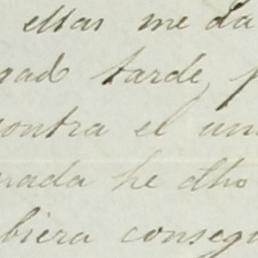 ellas me da
gad tarde, p
contra el un
nada he dho
biera conseg